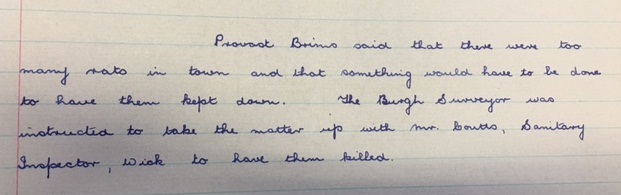 Provost Brims said that there were too
many rats in town and that something would have to be done
to have them kept down. The Burgh Surveyor was
instructed to take the matter up with Mr. Coutts, Sanitary
Inspector, Wick to have them killed.